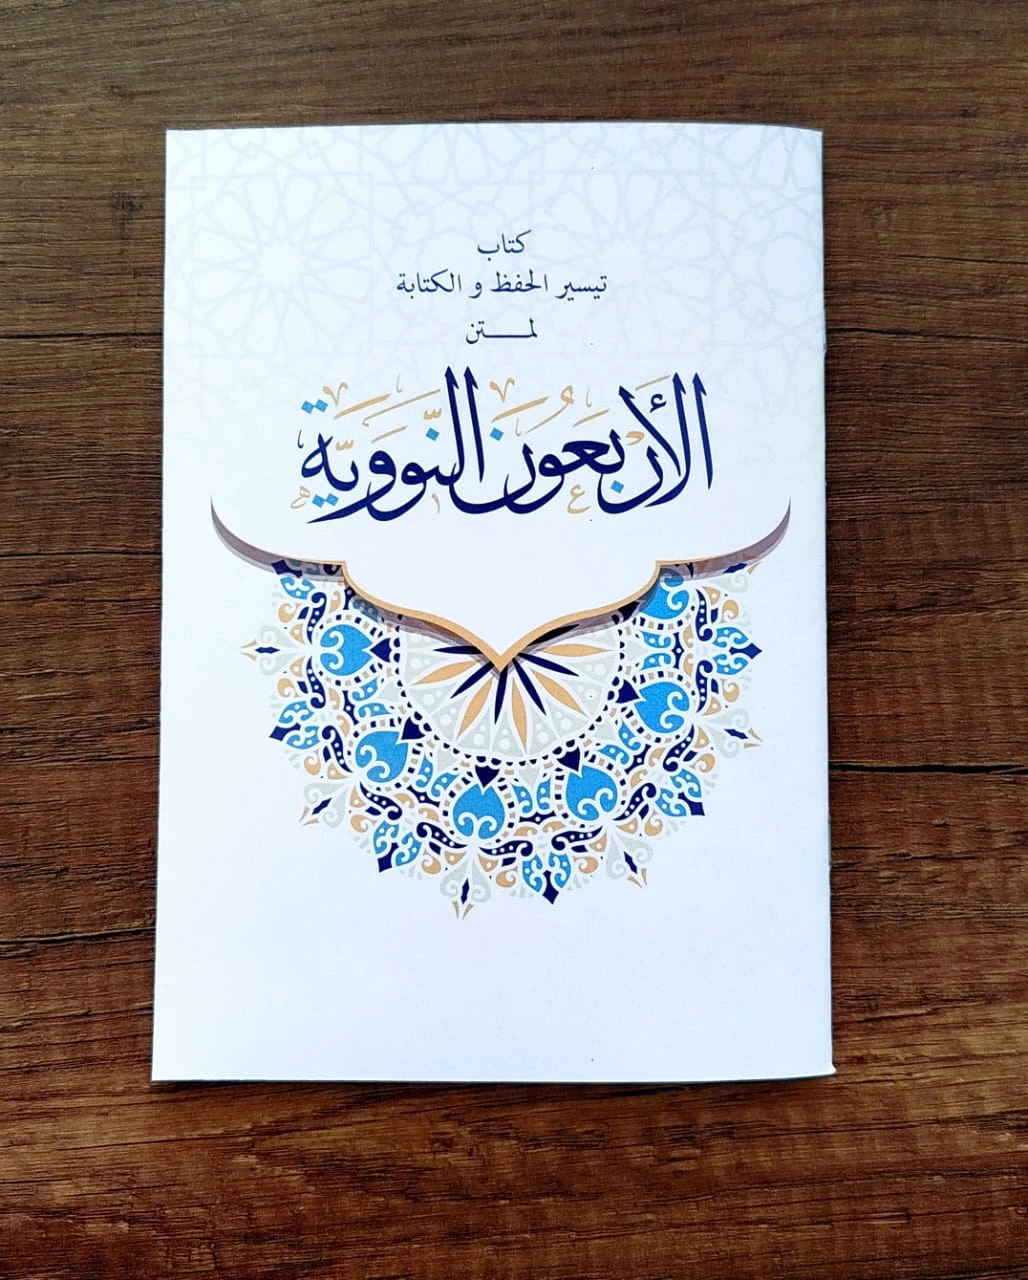 كتاب
تيسير الحفظ و الكتابة
لمـــتن
الأَرْبَعُونَ النَّوَوِيَّة